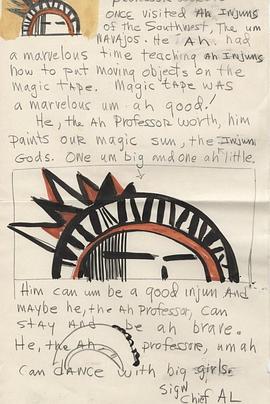 once visited Ah Injuns
of the Southwest, The um
NAVAJOS. He Ah had
a marvelous time teaching Ah Injuns
how to put moving objects on the
magic tape. Magic tape was
a marvelous um - ah good!
He, the Ah Professor worth, him
paints our magic sun, the Injun
Gods. One um big and one ah little.
Him can um be a good injun And
maybe he, the Ah Professor, can
stay And be ah brave.
He, the Ah professore, um ah
can dance with big girls.
Sign
Chief AL